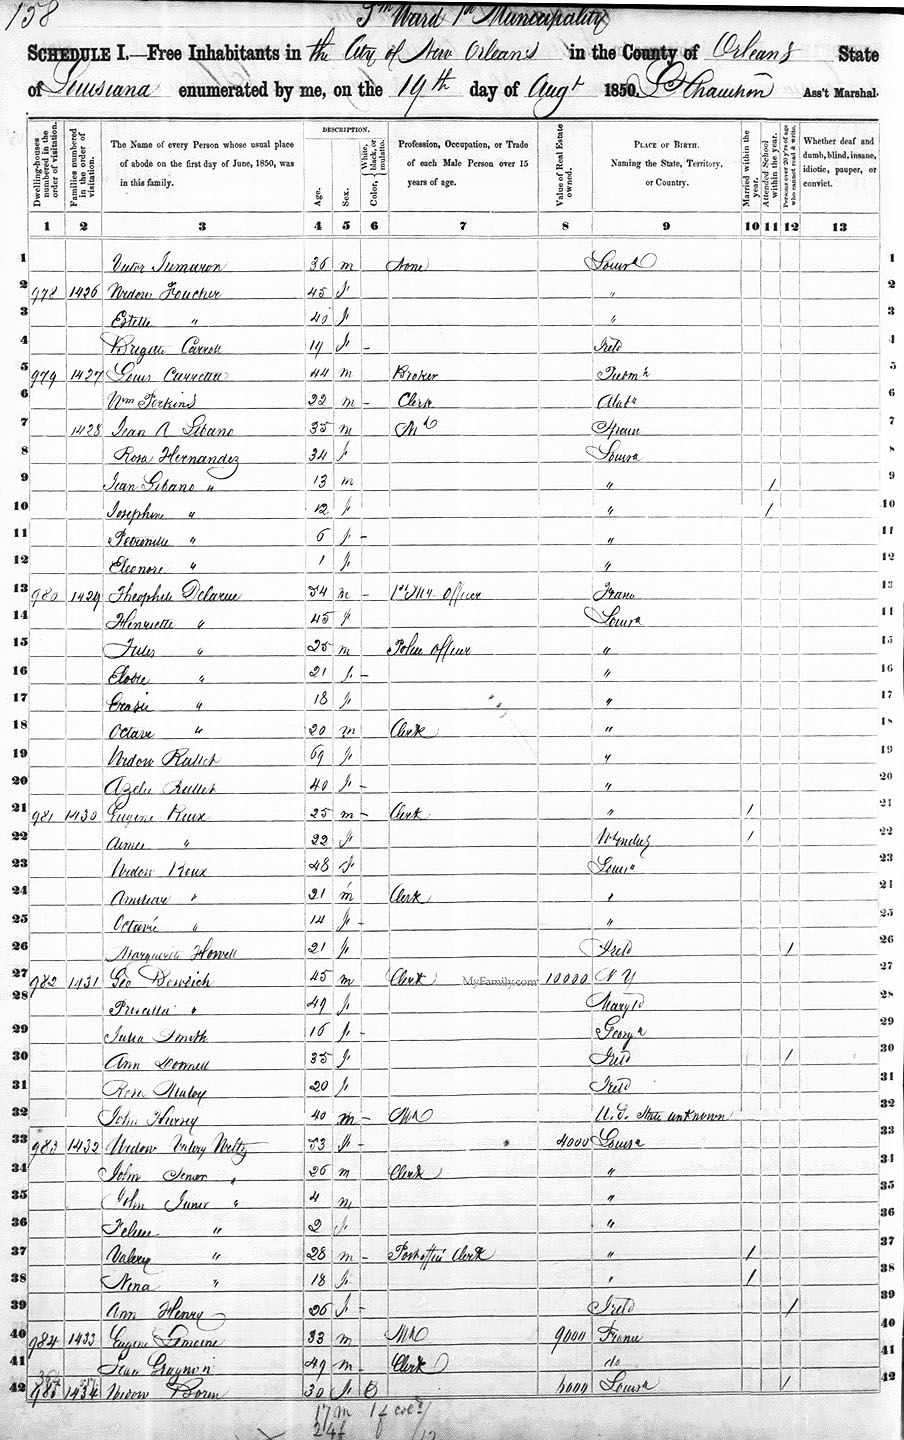 158
5th Ward 1st Municipality
SCHEDULE I.—Free Inhabitants in the City of New Orleans in the County of Orleans State
of Louisiana enumerated by me, on the 19th day of Augt 1850. Ass't Marshal.
DESCRIPTION.
Dwelling-houses numbered in the order of visitation. Families numbered in the order of visitation. The Name of every Person whose usual place of abode on the first day of June, 1850, was in this family. Age. Sex. Color, { White, black, or mulatto. Profession, Occupation, or Trade of each Male Person over 15 years of age. Value of Real Estate owned. PLACE OF BIRTH. Naming the State, Territory, or Country. Married within the year. Attended School within the year. Persons over 20 y'rs of age who cannot read & write. Whether deaf and dumb, blind, insane, idiotic, pauper, or convict.
1 2 3 4 5 6 7 8 9 10 11 12 13
1 Victor 36 m None Louisa 1
2 978 1426 Widow Foucher 45 f " 2
3 Estelle " 40 f " 3
4 Brigitte Carroll 19 f – Ireld 4
5 979 1427 Louis 44 m Broker 5
6 Wm Perkins 22 m – Clerk Alaba 6
7 1428 Jean A Libano 35 m Spain 7
8 Rosa Hernandez 34 f Louisa 8
9 Jean Libano " 13 m " / 9
10 Josephine " 12 f " / 10
11 Petronille " 6 f – " 11
12 Eleonore " 1 f " 12
13 980 1429 Theophile Delarue 54 m – officer France 13
14 Henriette " 45 f Louisa 14
15 Jules " 25 m Police officer " 15
16 " 21 f – " 16
17 " 18 f " 17
18 Octave " 20 m Clerk " 18
19 Widow 69 f " 19
20 Azelie 40 f – " 20
21 981 1430 Eugene Roux 25 m – Clerk " / 21
22 Aimee " 22 f W Indies / 22
23 Widow Roux 48 f Louisa 23
24 " 21 m Clerk " 24
25 Octavie " 14 f – " 25
26 Marguerite Howell 21 f Ireld / 26
27 982 1431 Geo 45 m Clerk MyFamily.com 10000 N Y 27
28 Priscilla " 49 f Maryld 28
29 Julia Smith 16 f – Georga 29
30 Ann Donnell 35 f Ireld / 30
31 Rosa 20 f Ireld 31
32 John 40 m – U.S. State unknown 32
33 983 1432 Widow Valery Weltz 53 f – 4000 Louisa 33
34 John Senior " 26 m Clerk " 34
35 John Junior " 4 m " 35
36 " 2 f " 36
37 Valery " 28 m – Post office Clerk " / 37
38 Nina " 18 f " / 38
39 Ann Henry 26 f – Ireld / 39
40 984 1433 Eugene Lemoine 33 m 9000 France 40
41 Jean 49 m – Clerk do 41
42 985 1434 Widow 30 f B Louisa / 42
17 m
24 f